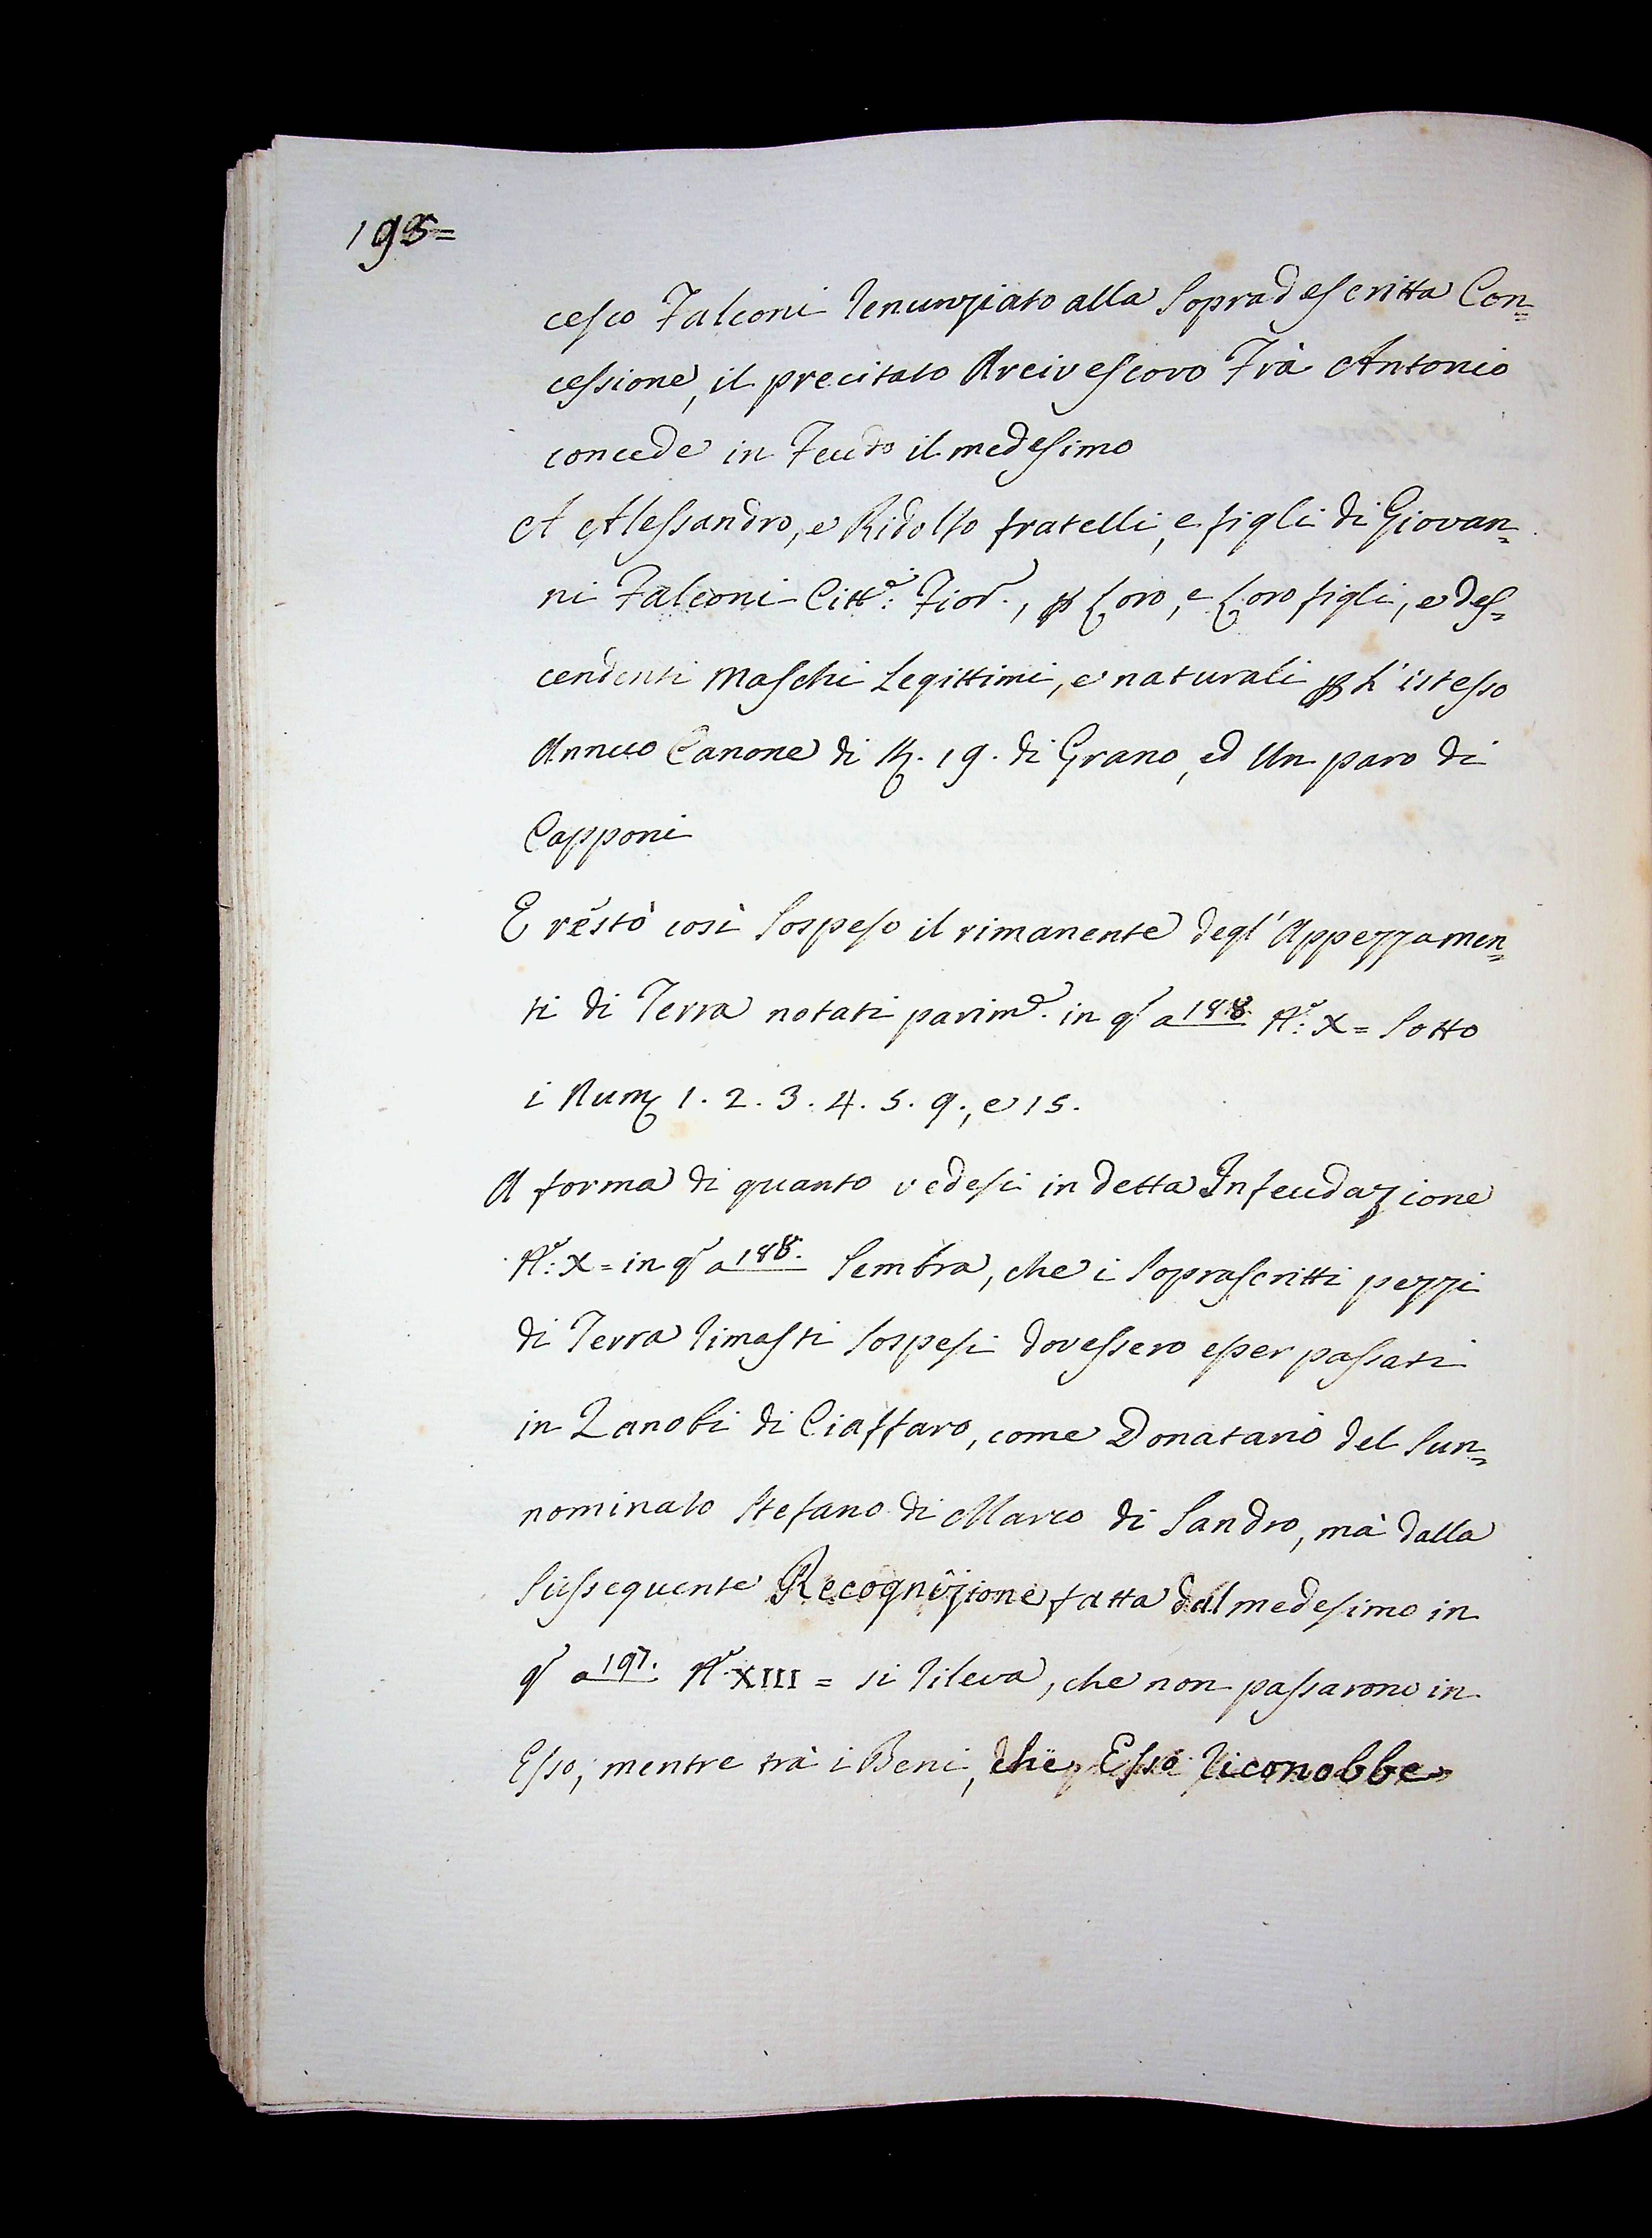 198=
cesco Falconi Renunziato alla Sopradescritta Con=
cessione, il precitato Arcivescovo Frà Antonio
concede in Feudo il medesimo
A Alessandro, e Ridolfo fratelli, e figli di Giovan=
ni Falconi Citt.ⁱ Fior.ⁱ, p Loro, e Loro figli, e des=
cendenti Maschi Legittimi, e naturali p L'istesso
Annuo Canone di 19. di Grano, ed Un paro di
Capponi
E restò così Sospeso il rimanente degl'Appezzamen=
ti di Terra notati parim.ᵉ in q.º a 188. N.º: X = Sotto
i Num 1. 2. 3. 4. 5. 9., e 15.
A forma di quanto vedesi in detta Infeudazione
N.º: X = in q.º a 188. Sembra, che i Soprascritti pezzi
di Terra Rimasti Sospesi dovessero esser passati
in Zanobi di Ciaffaro, come Donatario del Sun=
nominato Stefano di Marco di Sandro, mà dalla
Sussequente Recognizione fatta dal medesimo in
q.º a 197. N.º XIII = si Rileva, che non passarono in
Esso, mentre trà i Beni, che Esso Riconobbe